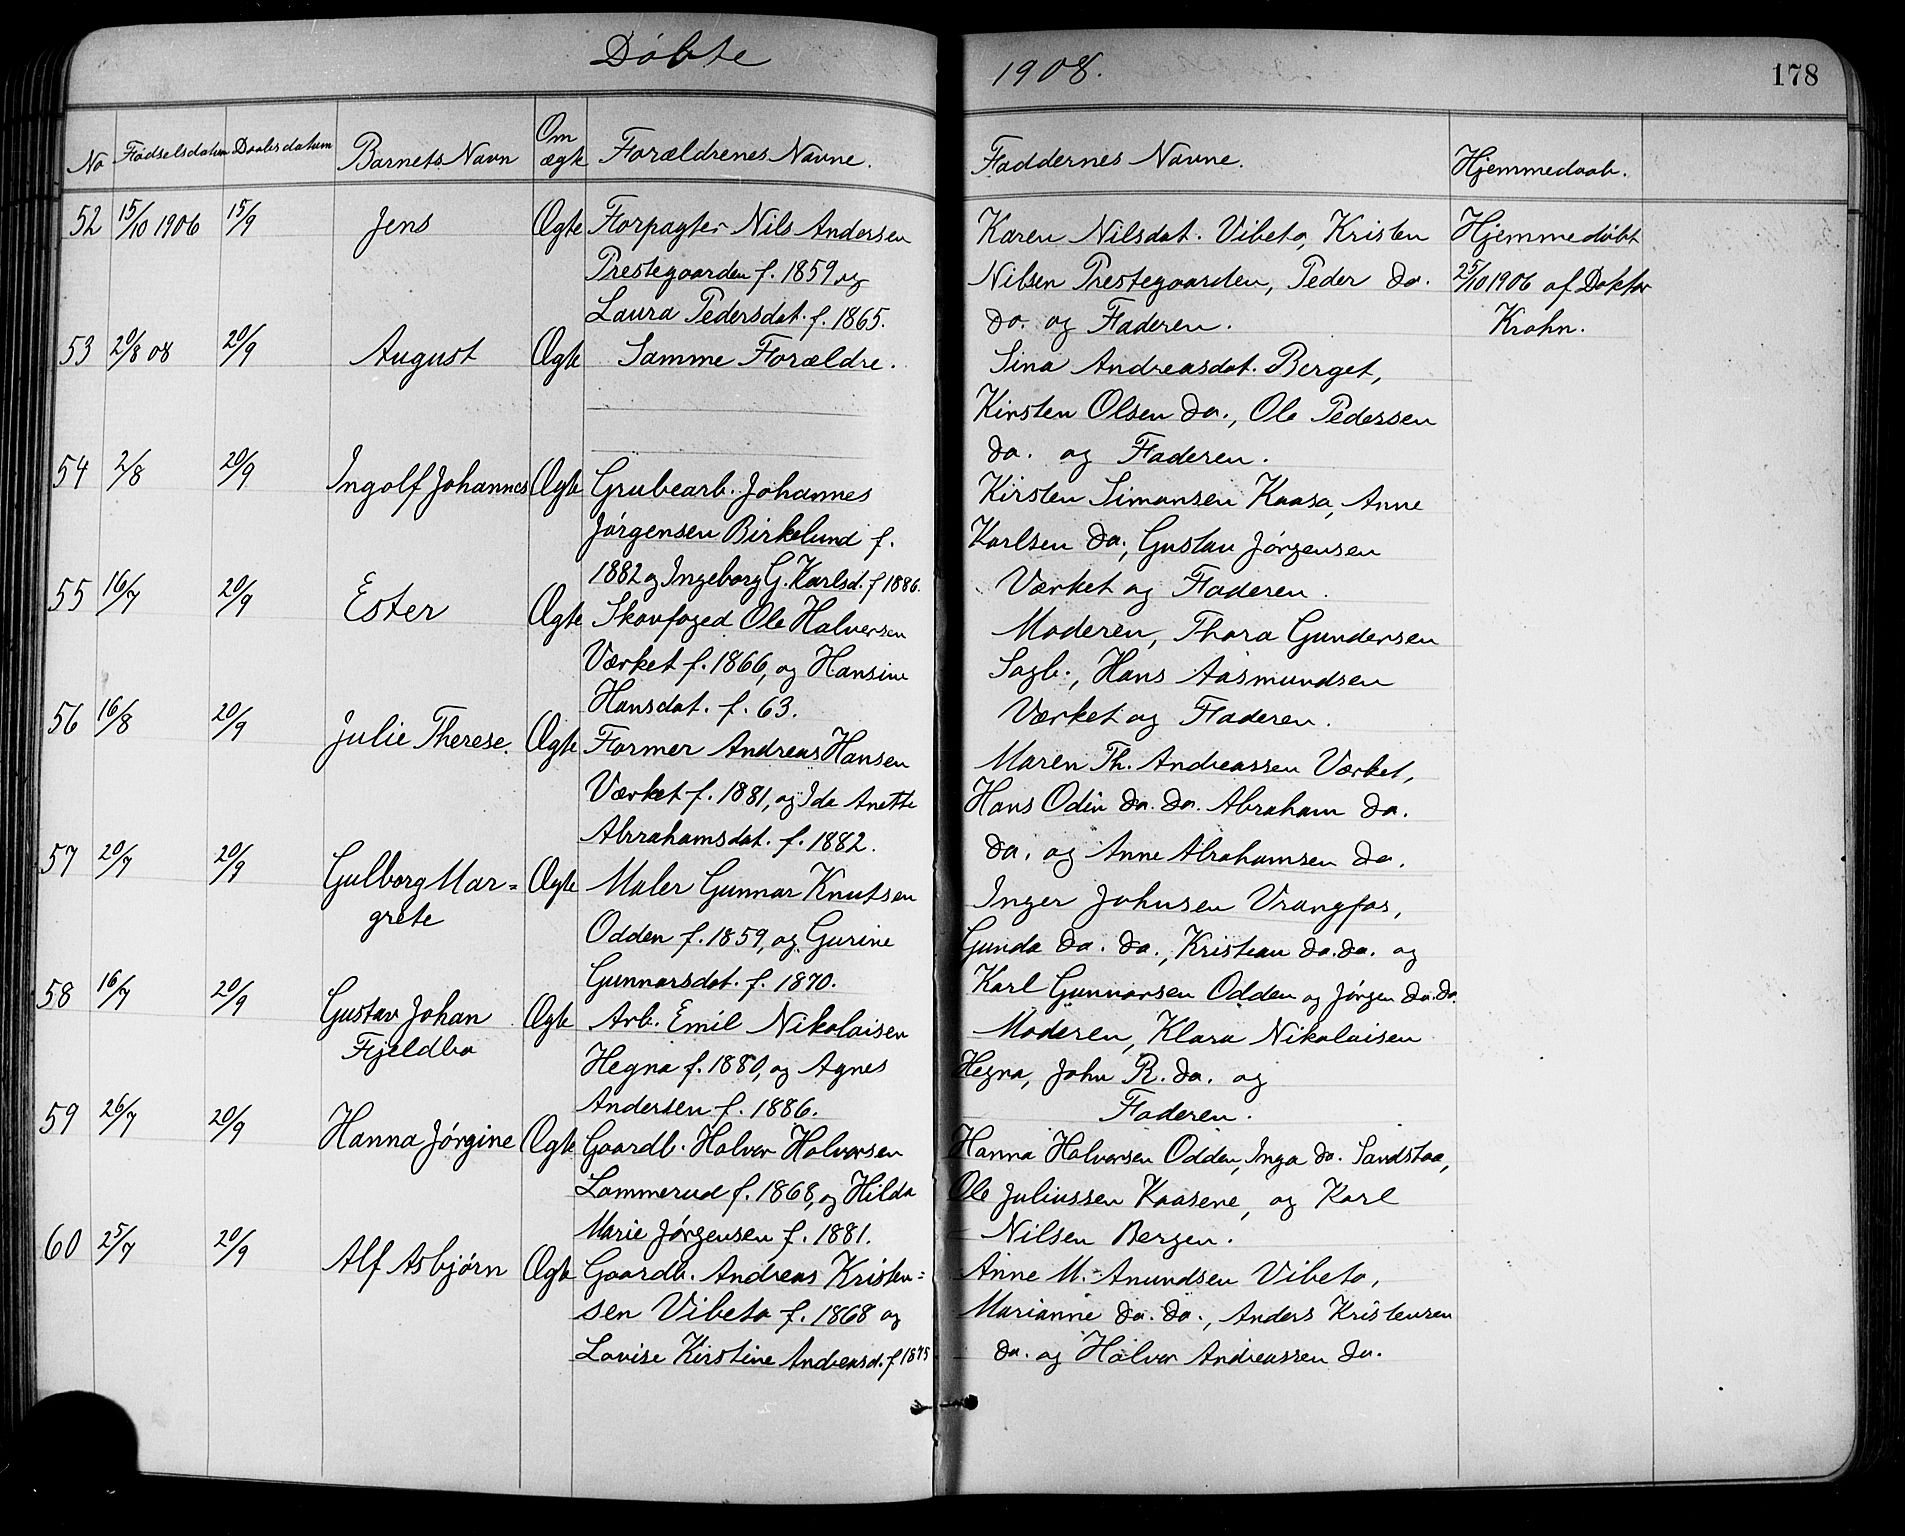 Døbte
1908.
178
No
Fødselsdatum
Daabsdatum
Barnets Navn
Om ægte
Forældrenes Navne.
Faddernes Navne.
Hjemmedaab.
52 15/10 1906 15/9 Jens Ægte Forpagter Nils Andersen
Prestegaarden f. 1859 og
Laura Pedersdat. f. 1865.
Karen Nilsdat. Vibeto, Kristen
Nilsen Prestegaarden, Peder do.
do. og Faderen.
Hjemmedøbt
25/10 1906 af Doktor
Krohn.
53 20/8 08 20/9 August Ægte Samme Forældre.
Sina Andreasdat. Berget,
Kirsten Olsen do., Ole Pedersen
do. og Faderen.
54 2/8 20/9 Ingolf Johannes Ægte Grubearb. Johannes
Jørgensen Birkelund f.
1882 og Ingeborg G. Karlsd. f 1886.
Kirsten Simonsen Kaasa, Anne
Karlsen do., Gustav Jørgensen
Værket og Faderen.
55 16/7 20/9 Ester Ægte Skovfoged Ole Halvorsen
Værket f. 1866, og Hansine
Hansdat. f. 63.
Moderen, Thora Gundersen
Sagb., Hans Aasmundsen
Værket og Faderen.
56 16/8 20/9 Julie Therese. Ægte Former Andreas Hansen
Værket f. 1881, og Ida Anette
Abrahamsdat. f. 1882.
Maren Th. Andreassen Værket,
Hans Odin do. do. Abraham do.
do. og Anne Abrahamsen do.
57 20/7 20/9 Gulborg Mar=
grete
Ægte Maler Gunnar Knutsen
Odden f. 1859, og Gurine
Gunnarsdat. f. 1870.
Inger Johnsen Vrangfos,
Gunda do. do., Kristian do. do. og
Karl Gunnarsen Odden og Jørgen do. do.
58 16/7 20/9 Gustav Johan
Fjeldbo
Ægte Arb. Emil Nikolaisen
Hegna f. 1880, og Agnes
Andersen f. 1886.
Moderen, Klara Nikolaisen
Hegna, John R. do. og
Faderen.
59 26/7 20/9 Hanna Jørgine Ægte Gaardb. Halvor Halvorsen
Lammerud f. 1868, og Hilda
Marie Jørgensen f. 1881.
Hanna Halvorsen Odden, Inga do. Sandstaa,
Ole Juliussen Kaasene, og Karl
Nilsen Bergen.
60 25/7 20/9 Alf Asbjørn Ægte Gaardb. Andreas Kristen=
sen Vibeto f. 1868 og
Lovise Kirstine Andreasd. f 1875
Anne M. Anundsen Vibeto,
Marianne do. do., Anders Kristensen
do. og Halvor Andreassen do.